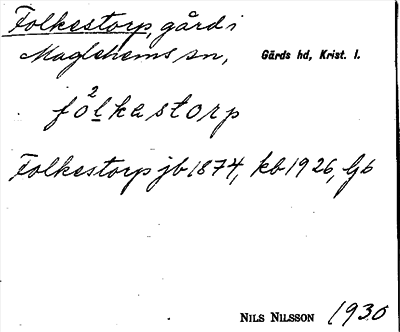 Folkestorp, gård i
Maglehems sn, Gärds hd, Krist. l.
fo²lkastorp
Folkestorp jb 1874, kb 1926, Gb
NILS NILSSON 1930